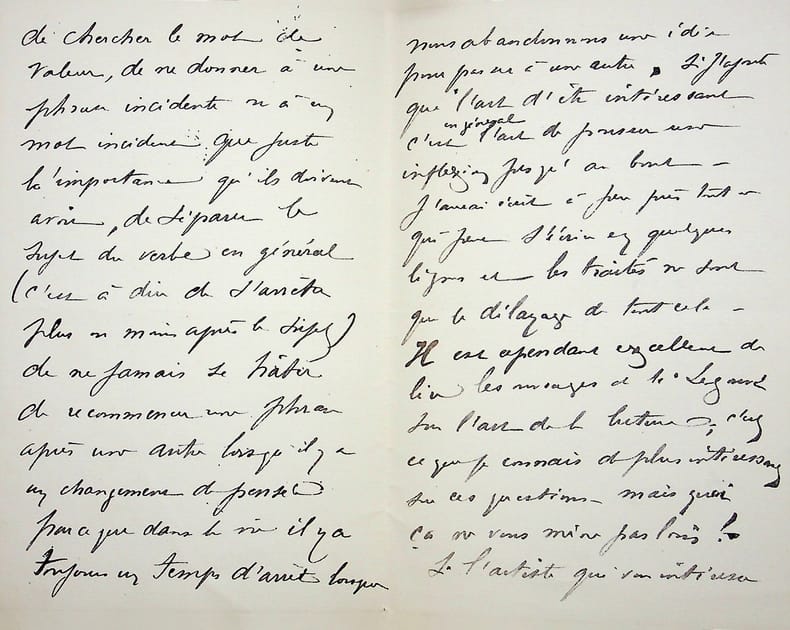 de chercher le mot de
valeur, de ne donner à une
phrase incidente ou à un
mot incident que juste
l'importance qu'ils doivent
avoir, de séparer le
sujet du verbe en général
(c'est à dire de s'arrêter
plus ou moins après le sujet)
de ne jamais se hâter
de recommencer une phrase
après une autre lorsqu'il y a
un changement de pensée
parce que dans la vie il y a
toujours un temps d'arrêt lorsque
nous abandonnons une idée
pour passer à une autre. Si j'ajoute
que l'art d'être intéressant
en général
c'est l'art de pousser une
inflexion jusqu'au bout –
j'aurai écrit à peu près tout ce
qui peut s'écrire en quelques
lignes et les traités ne sont
que le délayage de tout cela –
Il est cependant excellent de
lire les ouvrages de Mr Legouvé
sur l'art de la lecture, c'est
ce que je connais de plus intéressant
sur ces questions – mais quoi
ça ne vous mène pas loin !
Si l'artiste qui vous intéresse